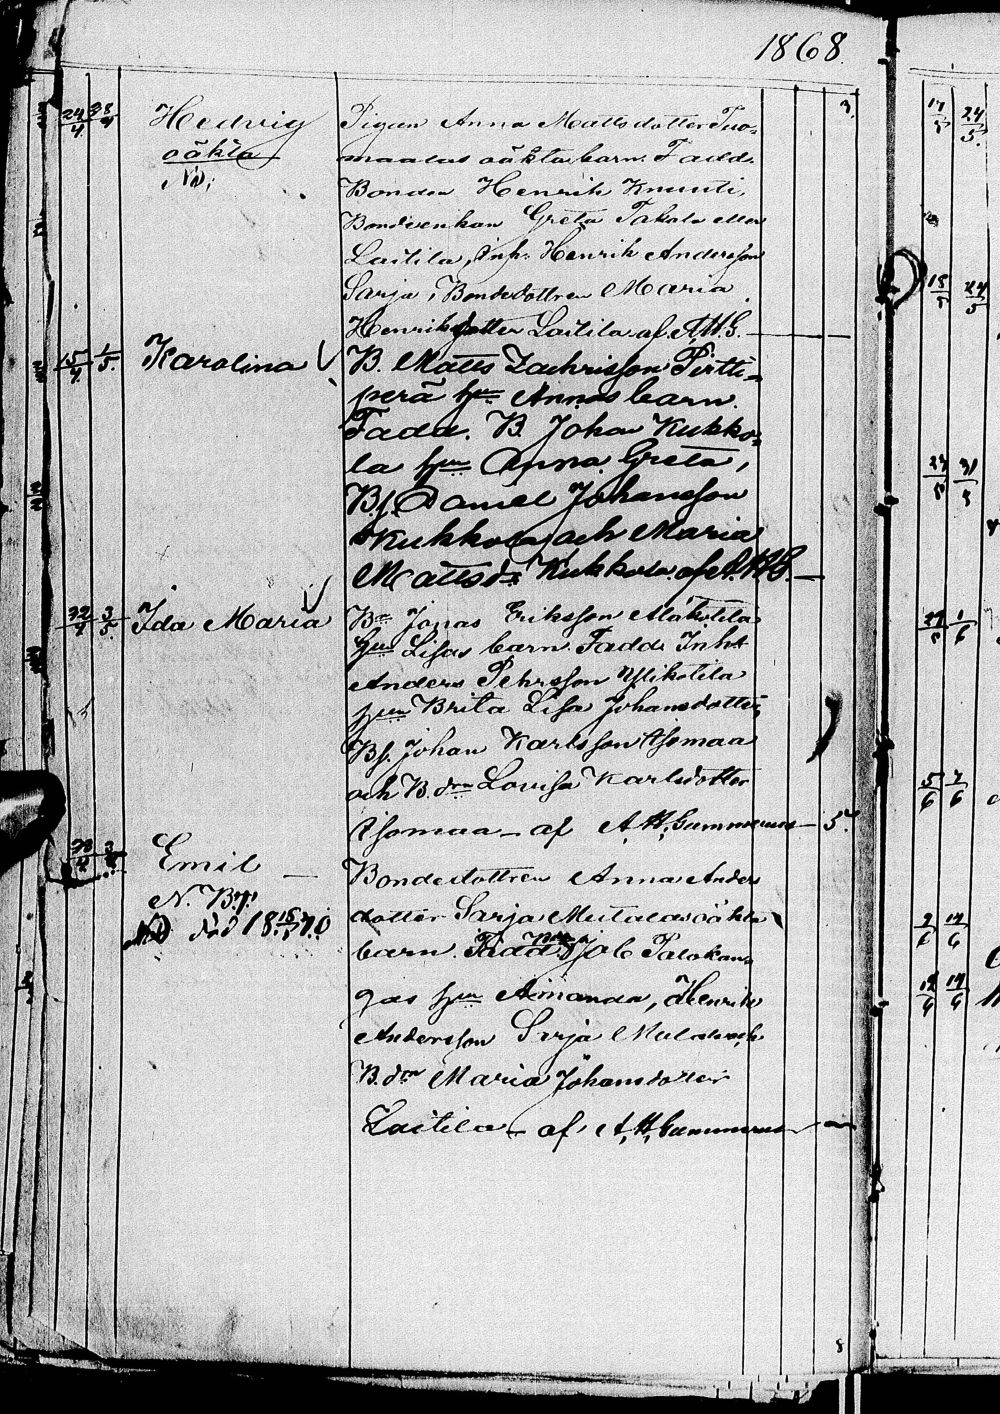 1868.
24/4 28/4 Hedvig Pigan Anna Mattsdotter Tuo=
oäkta maalas oäkta barn. Fadd.
Bonden Henrik Knuuti,
Bondeenkan Greta
Laitila, Inh. Henrik Andersson
Sarja, Bondedottren Maria
Henriksdotter Laitila af A.H.G.
3.
15/4 1/5. Karolina B. Matts Zachrisson Pirtti=
perä hu Annas barn.
Fadd. B. Johan Kukko=
la hun Anna Greta,
Bs. Daniel Johansson
Kukkola och Maria
Mattsdr Kukkola af A.H.G.
3/5. Ida Maria Bn Jonas Eriksson Alakotila
hus Lisas barn. Fadd. Inhs
Anders Pehrsson Ylikotila
hun Brita Lisa Johansdotter,
Bs. Johan Karlsson Isomaa
och B.drn Lovisa Karlsdotter
Isomaa – af A.H. Gummerus – 5.
Emil – Bondedottren Anna Anders
N. B. dotter Sarja oäkta
Död 18 15/1 70 barn. Fadd. Job Palokan=
gas hun Amanda, Henrik
Andersson Sarja
B.drn Maria Johansdotter
Laitila – af A.H. Gummerus –
8
17/5 24/5.
18/5 24/5
23/5 31/5
1/6
5/6 7/6
14/6
14/6